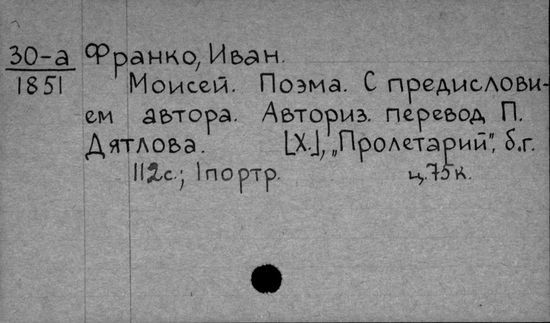 30-а Франко, Иван.
1851 Моисей. Поэма. С предислови-
ем автора. Авториз. перевод П.
Дятлова. [Х.], „Пролетарий", б.г.
112с.; 1портр. ц.75к.